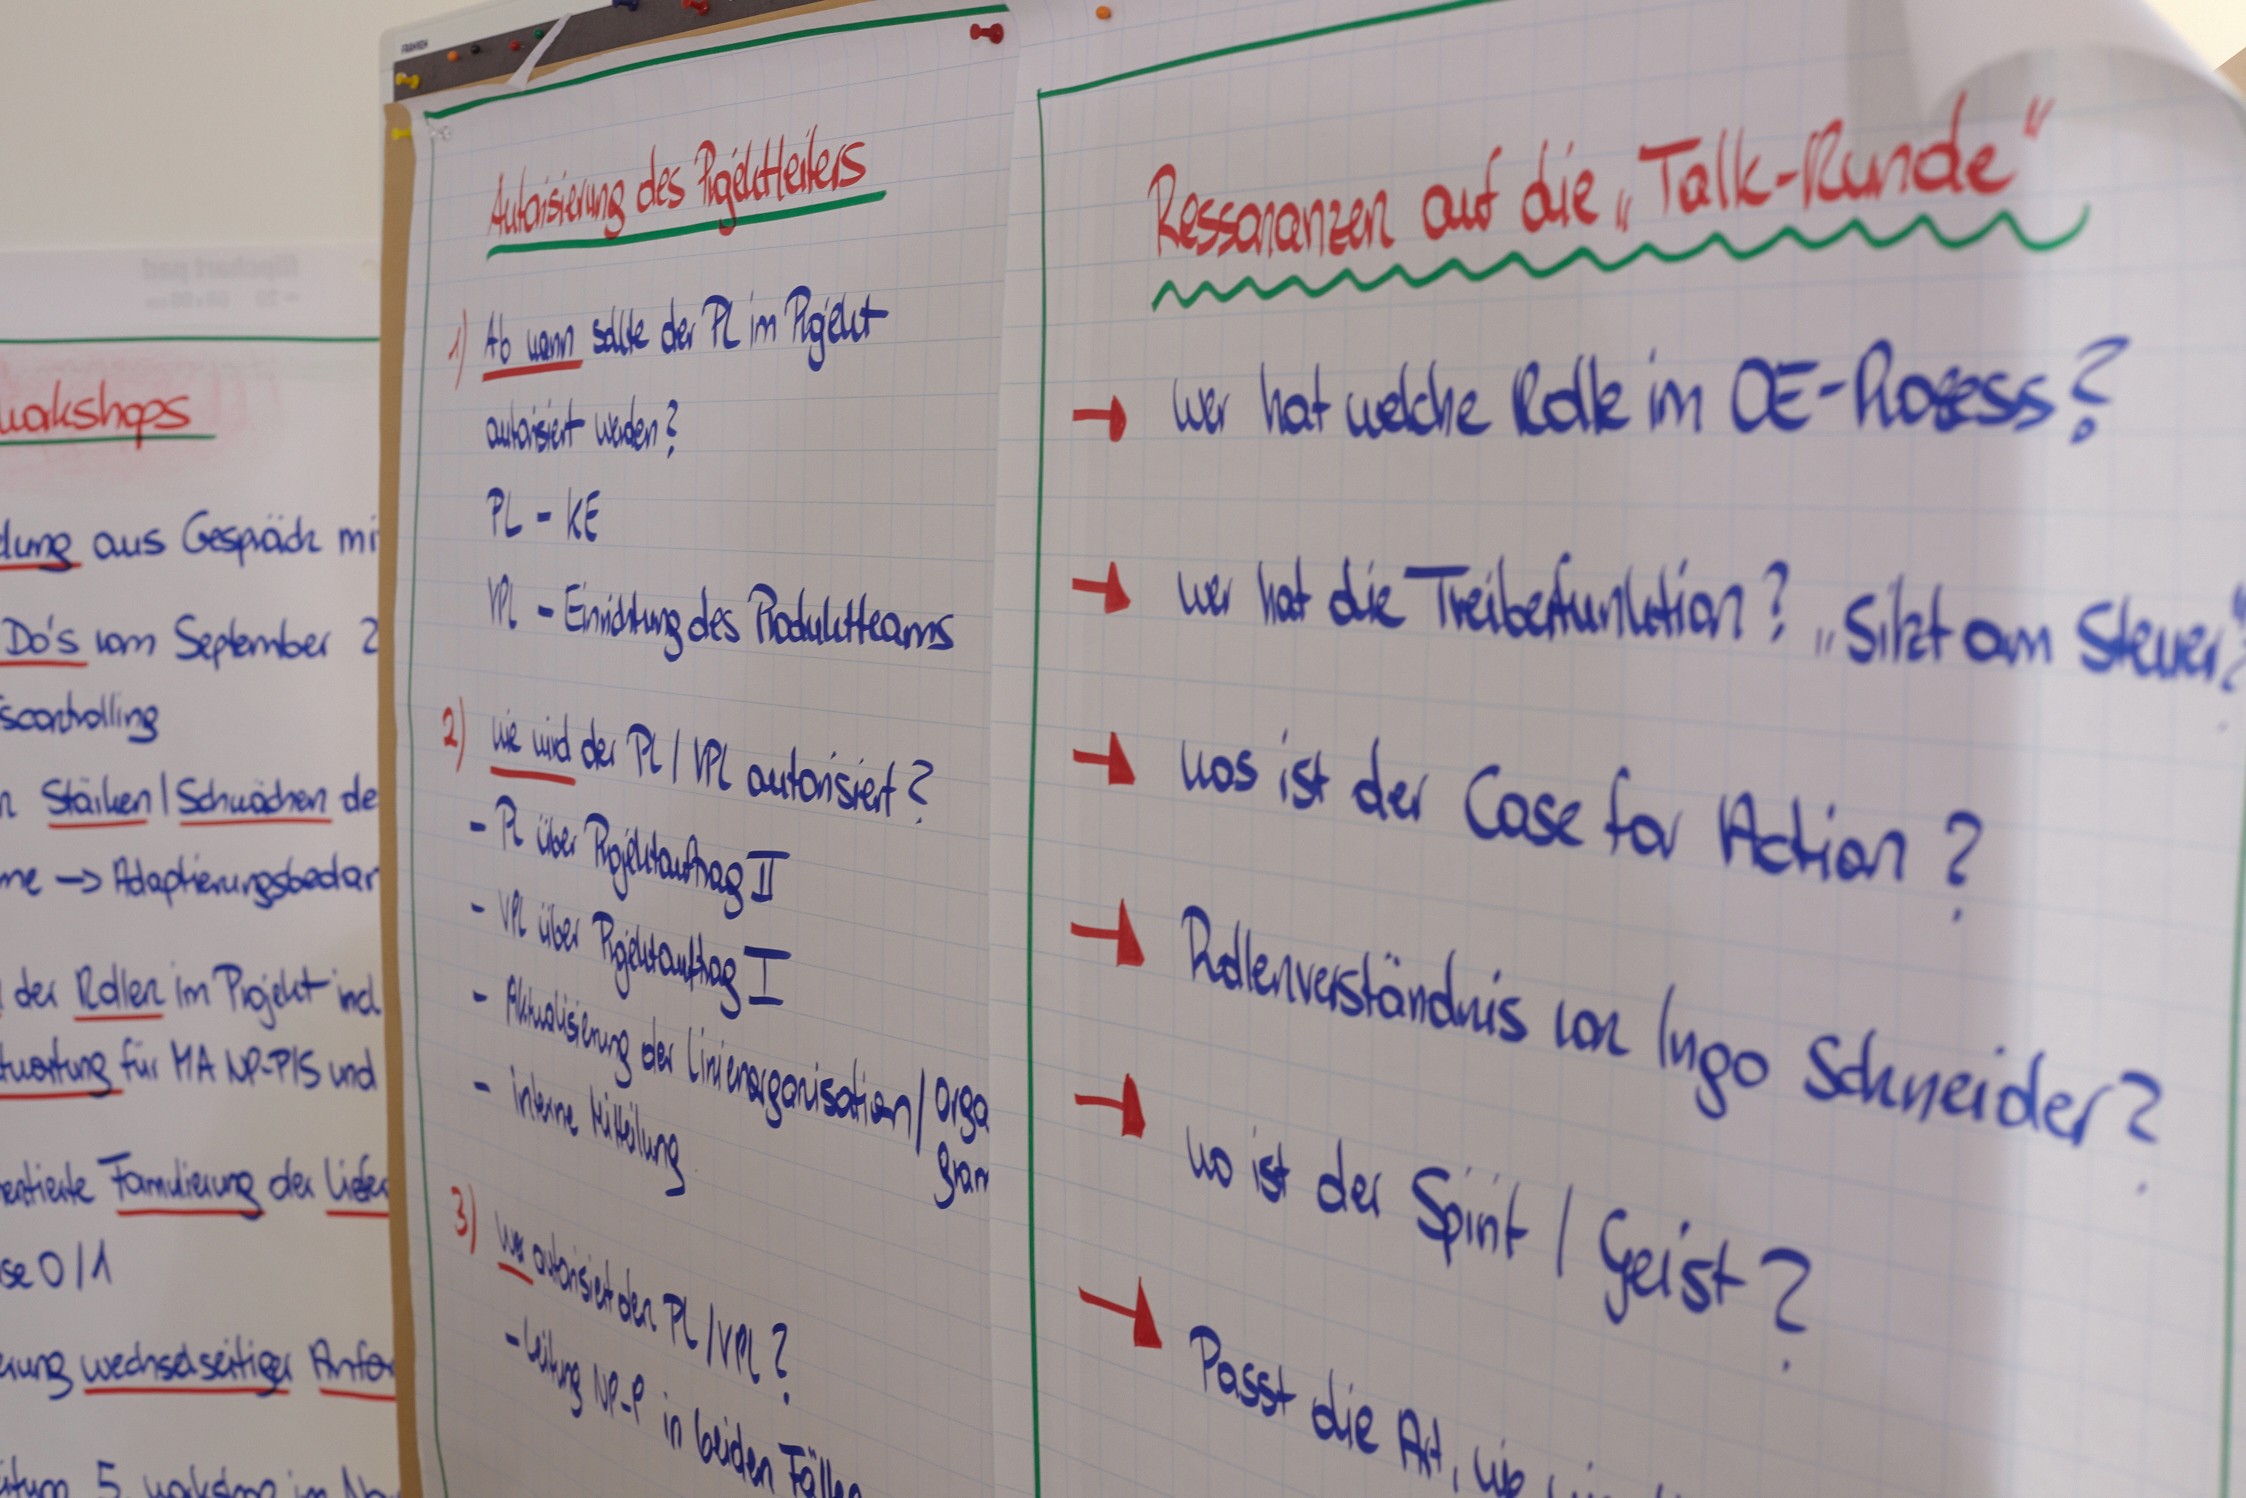 workshops
dlung aus Gespräch mi
Do's vom September 2
scontrolling
n Stärken / Schwächen de
me → Adaptierungsbedar
der Rollen im Projekt incl
twortung für MA NP-PIS und
entierte Formulierung der Liefer
se 0/1
erung wechselseitiger Anfor
5. workshop im
Autorisierung des Projektleiters
1) Ab wann sollte der PL im Projekt
autorisiert werden?
PL - KE
VPL - Einrichtung des Produktteams
2) wie wird der PL / VPL autorisiert?
- PL über Projektauftrag II
- VPL über Projektauftrag I
- Aktualisierung der Linienorganisation / Orga
gram
- interne Mitteilung
3) Wer autorisiert den PL / VPL?
- Leitung NP-P in beiden Fällen
Ressonanzen auf die „Talk-Runde“
→ wer hat welche Rolle im OE-Prozess?
→ wer hat die Treiberfunktion? „Sitzt am Steuer“?
→ was ist der Case for Action?
→ Rollenverständnis von Ingo Schneider?
→ wo ist der Spirit / Geist?
→ Passt die Art, wie